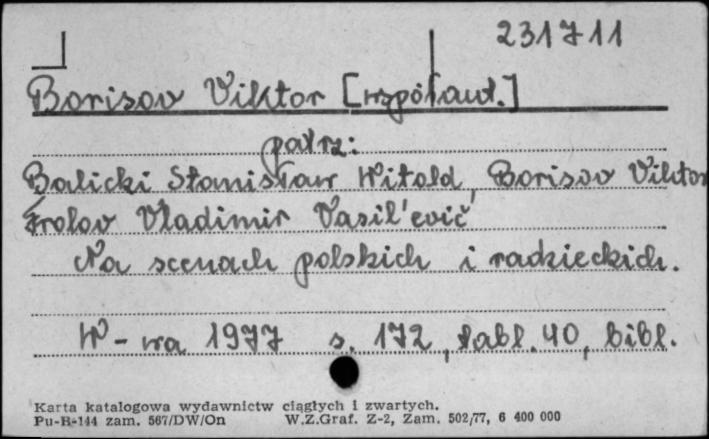 231711
Borisov Viktor [współaut.]
patrz:
Balicki Stanisław Witold, Borisov Viktor
Frolov Vladimir Vasil'evič
Na scenach polskich i radzieckich.
W-wa 1977 s. 172, tabl. 40, bibl.
Karta katalogowa wydawnictw ciągłych i zwartych.
Pu-B-144 zam. 567/DW/On W.Z.Graf. Z-2, Zam. 502/77, 6 400 000